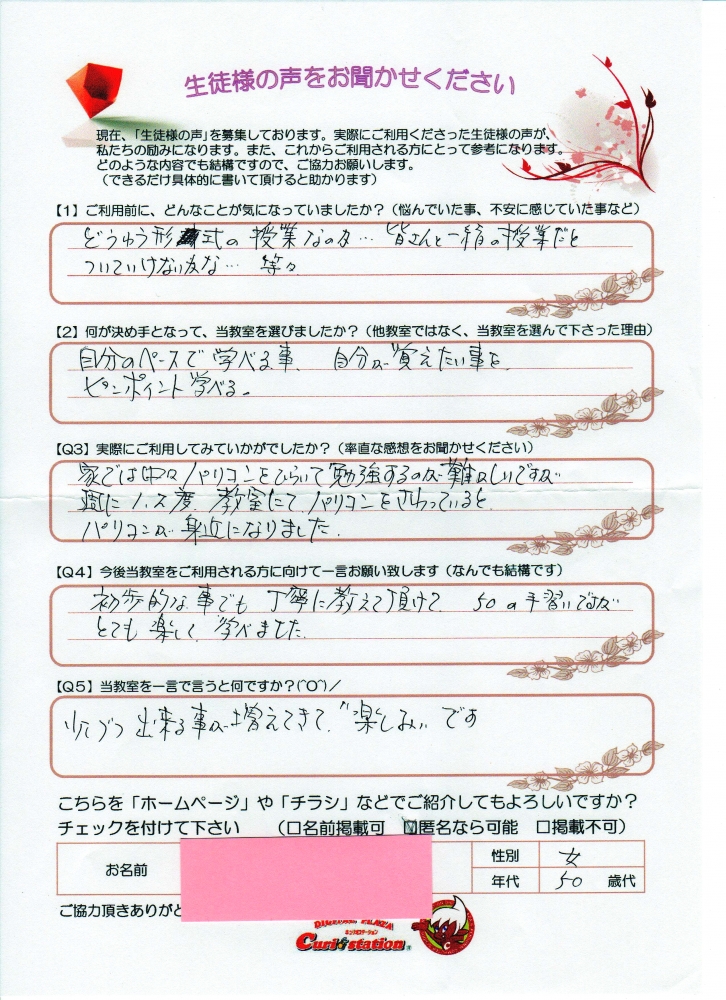 生徒様の声をお聞かせください
現在、「生徒様の声」を募集しております。実際にご利用くださった生徒様の声が、
私たちの励みになります。また、これからご利用される方にとって参考になります。
どのような内容でも結構ですので、ご協力お願いします。
（できるだけ具体的に書いて頂けると助かります）
【1】ご利用前に、どんなことが気になっていましたか？（悩んでいた事、不安に感じていた事など）
どうゆう形式の授業なのか… 皆さんと一緒の授業だと
ついていけないかな… 等々
【2】何が決め手となって、当教室を選びましたか？（他教室ではなく、当教室を選んで下さった理由）
自分のペースで学べる事、自分が覚えたい事を
ピンポイント学べる。
【Q3】実際にご利用してみていかがでしたか？（率直な感想をお聞かせください）
家では中々パソコンをひらいて勉強するのが難しいですが
週に1、2度、教室にてパソコンをさわっていると、
パソコンが身近になりました。
【Q4】今後当教室をご利用される方に向けて一言お願い致します（なんでも結構です）
初歩的な事でも丁寧に教えて頂けて、50の手習いですが
とても楽しく学べました。
【Q5】当教室を一言で言うと何ですか？(^O^)／
少しづつ出来る事が増えてきて、"楽しみ"です
こちらを「ホームページ」や「チラシ」などでご紹介してもよろしいですか？
チェックを付けて下さい （□名前掲載可 ☑匿名なら可能 □掲載不可）
お名前 性別 女
年代 50 歳代
ご協力頂きありがと
DIGITAL PLAZA
キュリオステーション
Curio station